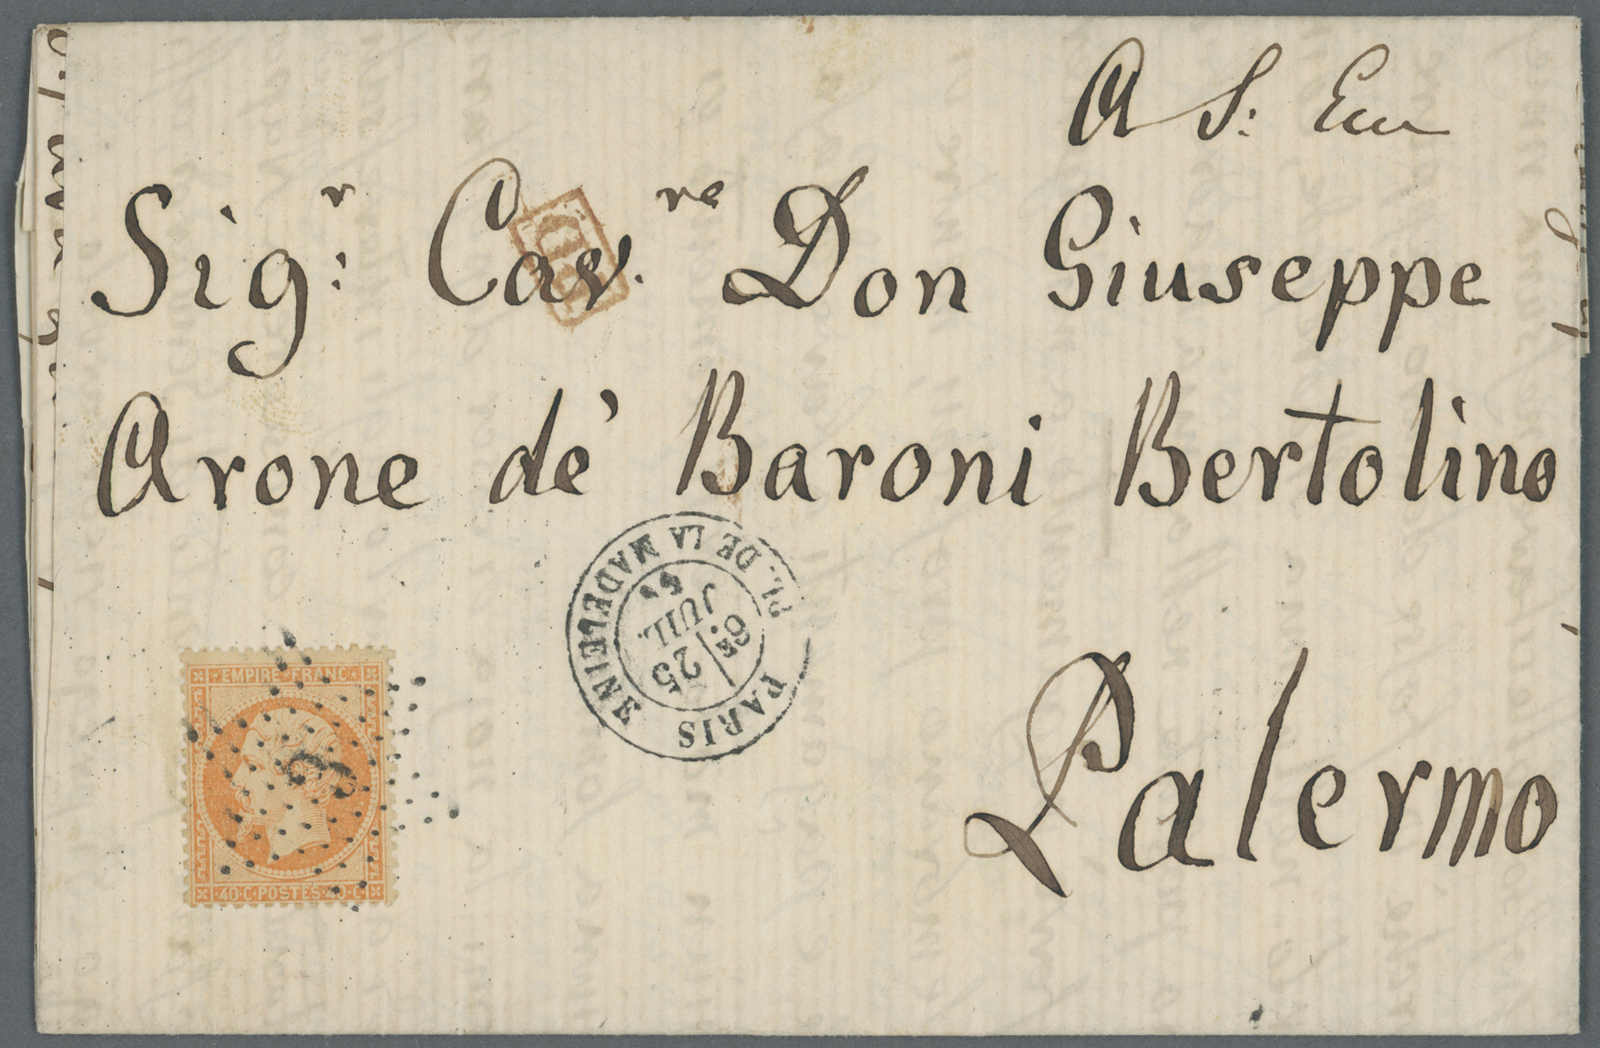 A S: Ecc
Sig.r Cav.re Don Giuseppe
PD
Arone de' Baroni Bertolino
PARIS PL. DE LA MADELEINE
6E
25
JUIL.
Palermo
EMPIRE FRANC
3
40 C POSTES 40 C